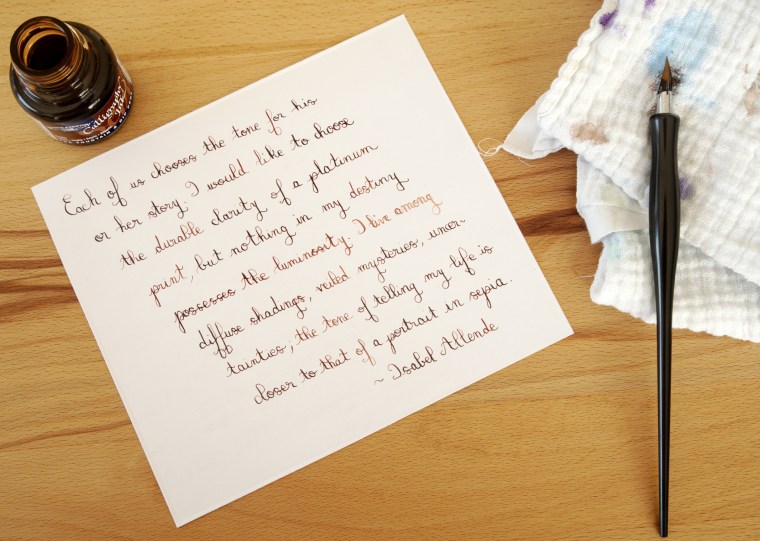 Each of us chooses the tone for his
or her story. I would like to choose
the durable clarity of a platinum
print, but nothing in my destiny
possesses the luminosity. I live among
diffuse shadings, veiled mysteries, uncer-
tainties; the tone of telling my life is
closer to that of a portrait in sepia.
~ Isabel Allende
Calligraphy
Ink